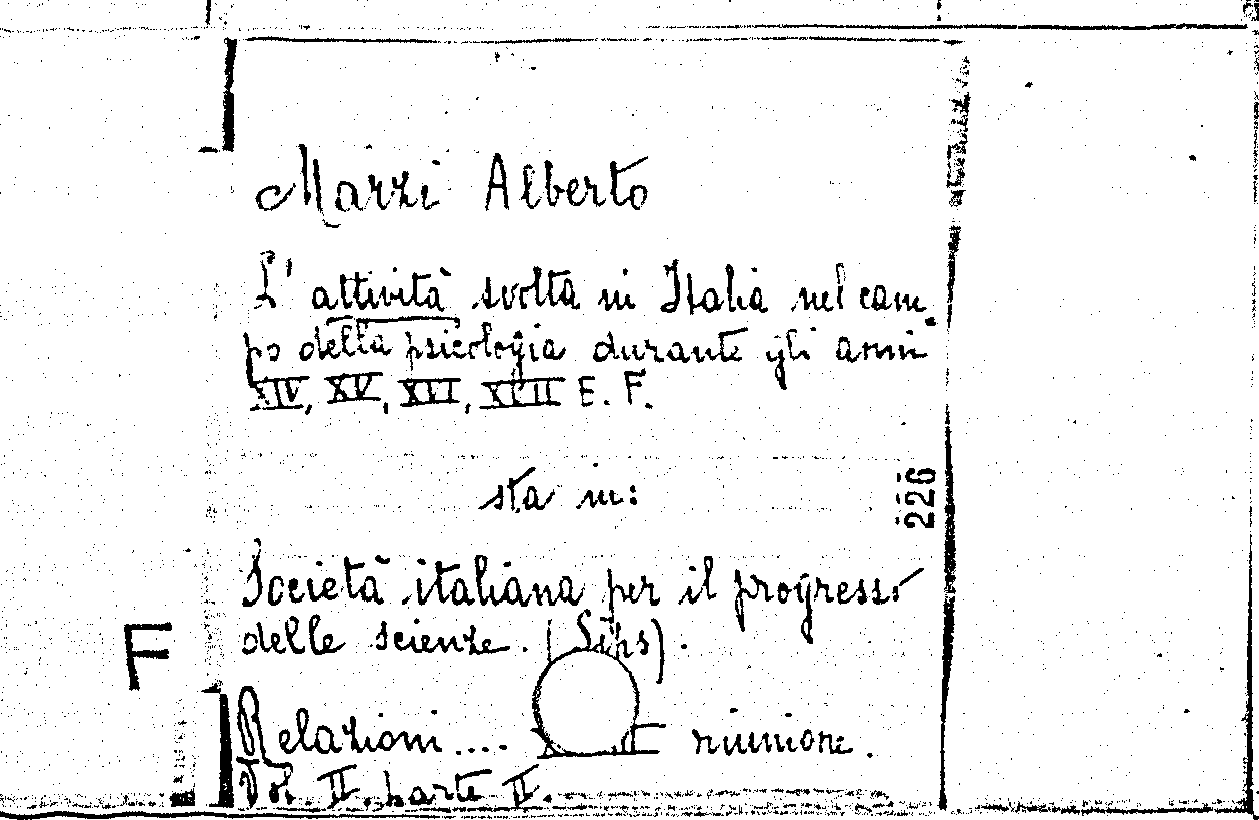 Marzi Alberto
L'attività svolta in Italia nel cam-
po della psicologia durante gli anni
XIV, XV, XVI, XVII E. F.
226
sta in:
Società italiana per il progresso
delle scienze. (Sips).
F
Relazioni .... riunione.
Vol II. parte II.